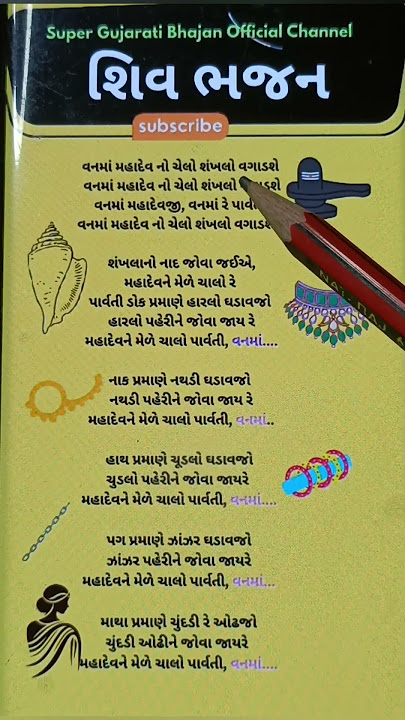 Super Gujarati Bhajan Official Channel
શિવ ભજન
subscribe
વનમાં મહાદેવ નો ચેલો શંખલો વગાડશે
વનમાં મહાદેવ નો ચેલો શંખલો
વનમાં મહાદેવજી, વનમાં રે
વનમાં મહાદેવ નો ચેલો શંખલો
શંખલાનો નાદ જોવા જઈએ,
મહાદેવને મેળે ચાલો રે
પાર્વતી ડોક પ્રમાણે હારલો ઘડાવજો
હારલો પહેરીને જોવા જાય રે
મહાદેવને મેળે ચાલો પાર્વતી, વનમાં....
નાક પ્રમાણે નથડી ઘડાવજો
નથડી પહેરીને જોવા જાય રે
મહાદેવને મેળે ચાલો પાર્વતી, વનમાં..
હાથ પ્રમાણે ચૂડલો ઘડાવજો
ચુડલો પહેરીને જોવા જાયરે
મહાદેવને મેળે ચાલો પાર્વતી, વનમાં....
પગ પ્રમાણે ઝાંઝર ઘડાવજો
ઝાંઝર પહેરીને જોવા જાયરે
મહાદેવને મેળે ચાલો પાર્વતી, વનમાં...
માથા પ્રમાણે ચુંદડી રે ઓઢજો
ચુંદડી ઓઢીને જોવા જાયરે
મહાદેવને મેળે ચાલો પાર્વતી, વનમાં....